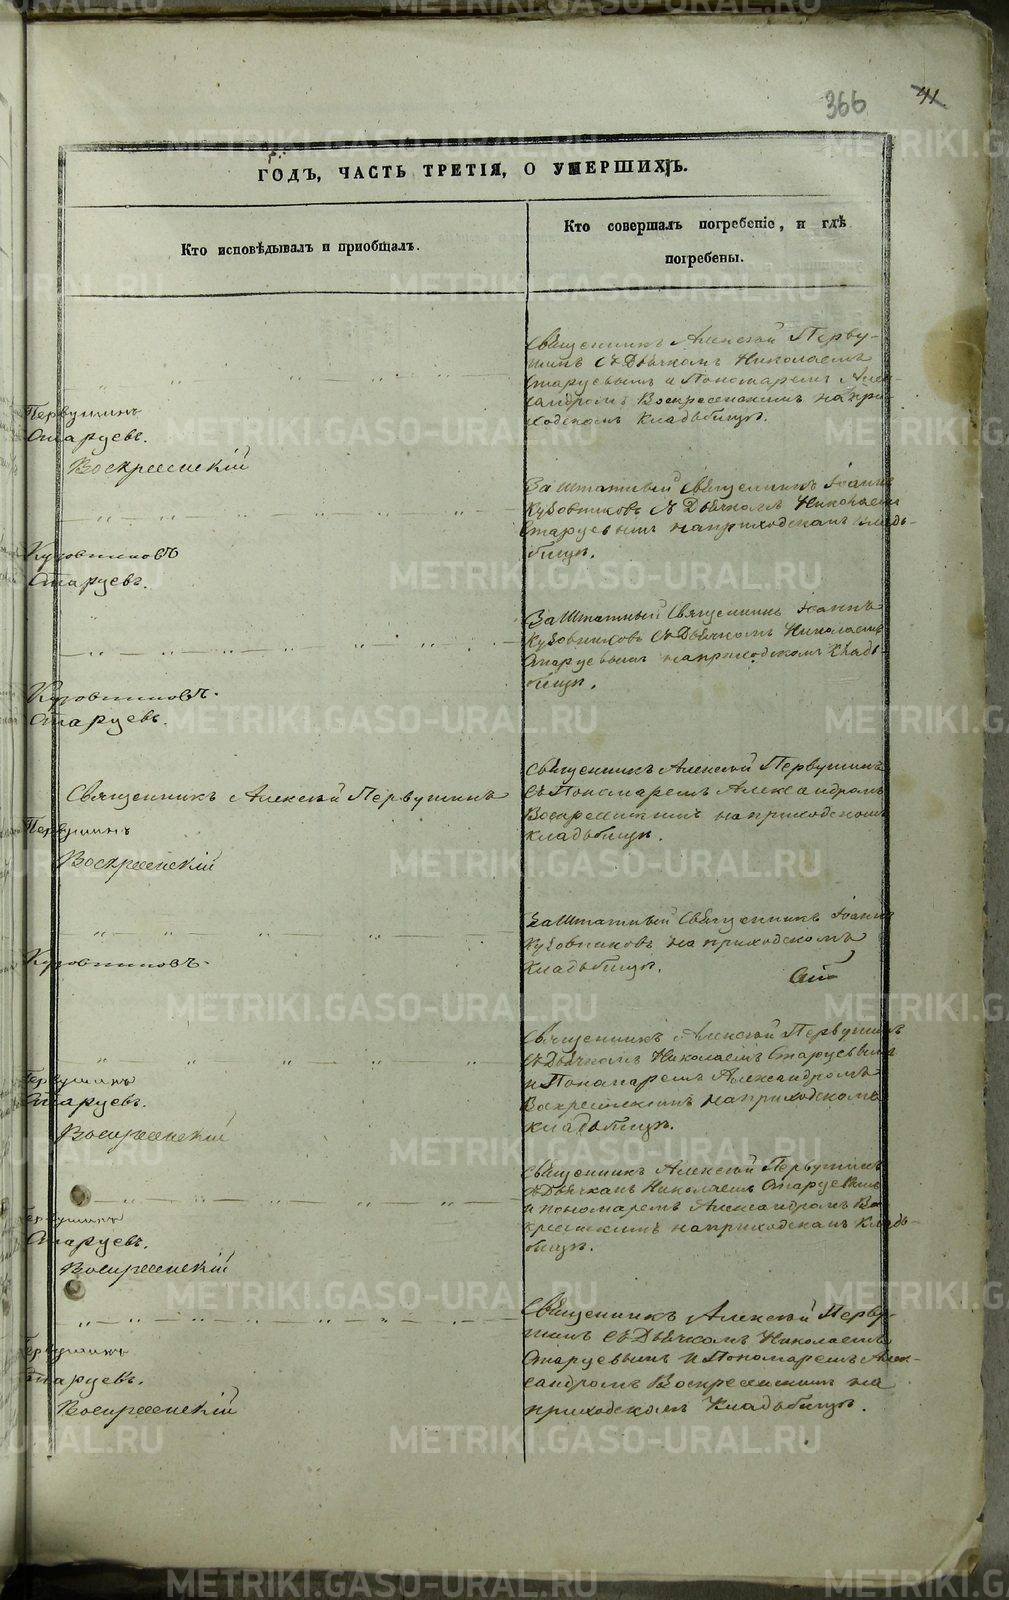 366 41
ГОДЪ, ЧАСТЬ ТРЕТІЯ, О УМЕРШИХЪ.
Кто исповѣдывалъ и пріобщалъ.
Кто совершалъ погребеніе, и гдѣ
погребены.
Священникъ Алексѣй Перву-
шинъ съ Дьячкомъ Николаемъ
Старцевымъ и Пономаремъ Алек-
сандромъ Воскресенскимъ на при-
ходскомъ Кладбищѣ.
Первушинъ
Старцевъ.
Воскресенскій
Заштатный Священникъ Іоаннъ
Кузовниковъ съ Дьячкомъ Николаемъ
Старцевымъ на приходскомъ Клад-
бищѣ.
Кузовниковъ
Старцевъ.
Заштатный Священникъ Іоаннъ
Кузовниковъ съ Дьячкомъ Николаемъ
Старцевымъ на приходскомъ Клад-
бищѣ.
Кузовниковъ.
Старцевъ.
Священникъ Алексѣй Первушинъ
Священникъ Алексѣй Первушинъ
съ Пономаремъ Александромъ
Воскресенскимъ на приходскомъ
кладбищѣ.
Первушинъ
Воскресенскій
Заштатный Священникъ Іоаннъ
Кузовниковъ на приходскомъ
Кладбищѣ.
Кузовниковъ.
Священникъ Алексѣй Первушинъ
съ Дьячкомъ Николаемъ Старцевымъ
и Пономаремъ Александромъ
Воскресенскимъ на приходскомъ
кладбищѣ.
Первушинъ
Старцевъ.
Воскресенскій
Священникъ Алексѣй Первушинъ
съ Дьячкомъ Николаемъ Старцевымъ
и пономаремъ Александромъ Вос-
кресенскимъ на приходскомъ Клад-
бищѣ.
Первушинъ
Старцевъ.
Воскресенскій
Священникъ Алексѣй Перву-
шинъ съ Дьячкомъ Николаемъ
Старцевымъ и Пономаремъ Алек-
сандромъ Воскресенскимъ на
приходскомъ Кладбищѣ.
Первушинъ
Старцевъ.
Воскресенскій
METRIKI.GASO-URAL.RU